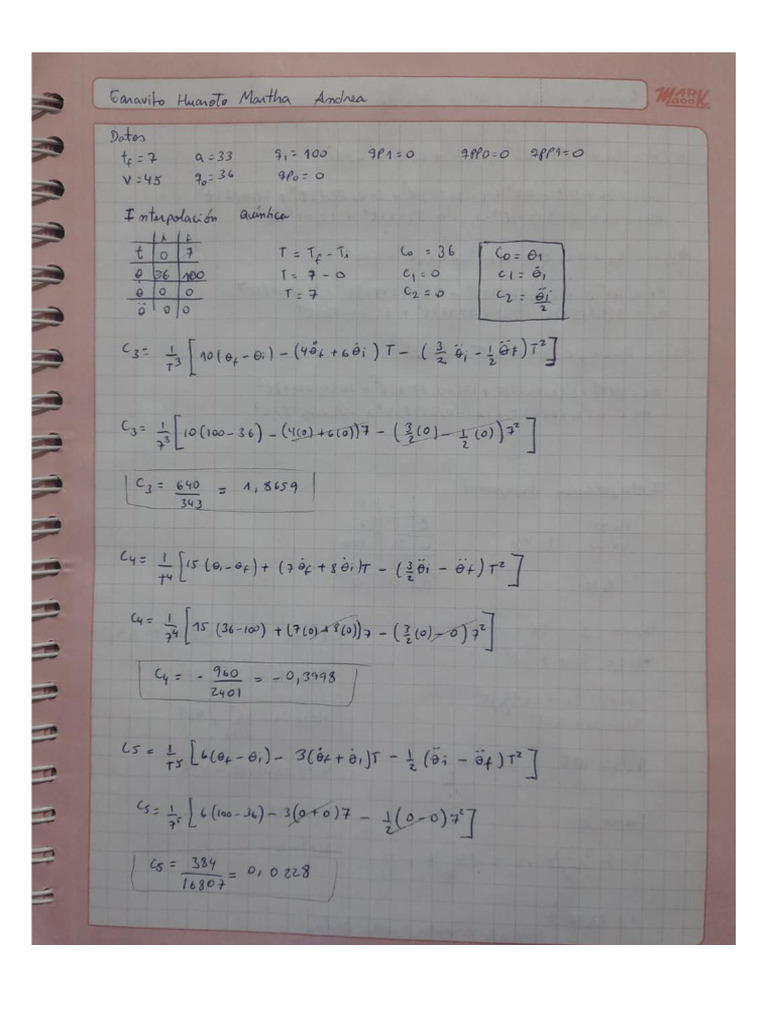 Garavito Huaroto Martha Andrea
MARK
MOOOK
Datos
t_f = 7 a = 33 q_1 = 100 qp1 = 0 qpp0 = 0 qpp1 = 0
v = 45 q_0 = 36 qp_0 = 0
Interpolación Quíntica
i f
t 0 7
θ 36 100
θ̇ 0 0
θ̈ 0 0
T = T_f - T_i
T = 7 - 0
T = 7
C_0 = 36
C_1 = 0
C_2 = 0
C_0 = θ_i
C_1 = θ̇_i
C_2 = θ̈_i/2
C_3 = 1/T^3 [10(θ_f - θ_i) - (4θ̇_f + 6θ̇_i) T - (3/2 θ̈_i - 1/2 θ̈_f) T^2]
C_3 = 1/7^3 [10(100-36) - (4(0)+6(0))7 - (3/2(0) - 1/2(0)) 7^2]
C_3 = 640/343 = 1,8659
C_4 = 1/T^4 [15(θ_i - θ_f) + (7θ̇_f + 8θ̇_i)T - (3/2 θ̈_i - θ̈_f) T^2]
C_4 = 1/7^4 [15(36-100) + (7(0)+8(0))7 - (3/2(0) - 0) 7^2]
C_4 = - 960/2401 = -0,3998
C_5 = 1/T^5 [6(θ_f - θ_i) - 3(θ̇_f + θ̇_i)T - 1/2 (θ̈_i - θ̈_f) T^2]
C_5 = 1/7^5 [6(100-36) - 3(0+0)7 - 1/2(0-0) 7^2]
C_5 = 384/16807 = 0,0228